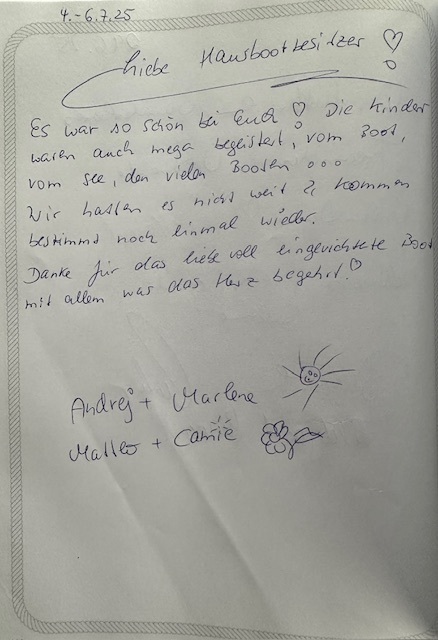 4.-6.7.25
Liebe Hausbootbesitzer ♡
Es war so schön bei Euch ♡ Die Kinder
waren auch mega begeistert, vom Boot,
vom See, den vielen Booten ...
Wir hatten es nicht weit & kommen
bestimmt noch einmal wieder.
Danke für das liebe voll eingerichtete Boot
mit allem was das Herz begehrt! ♡
Andrej + Marlene
Matteo +